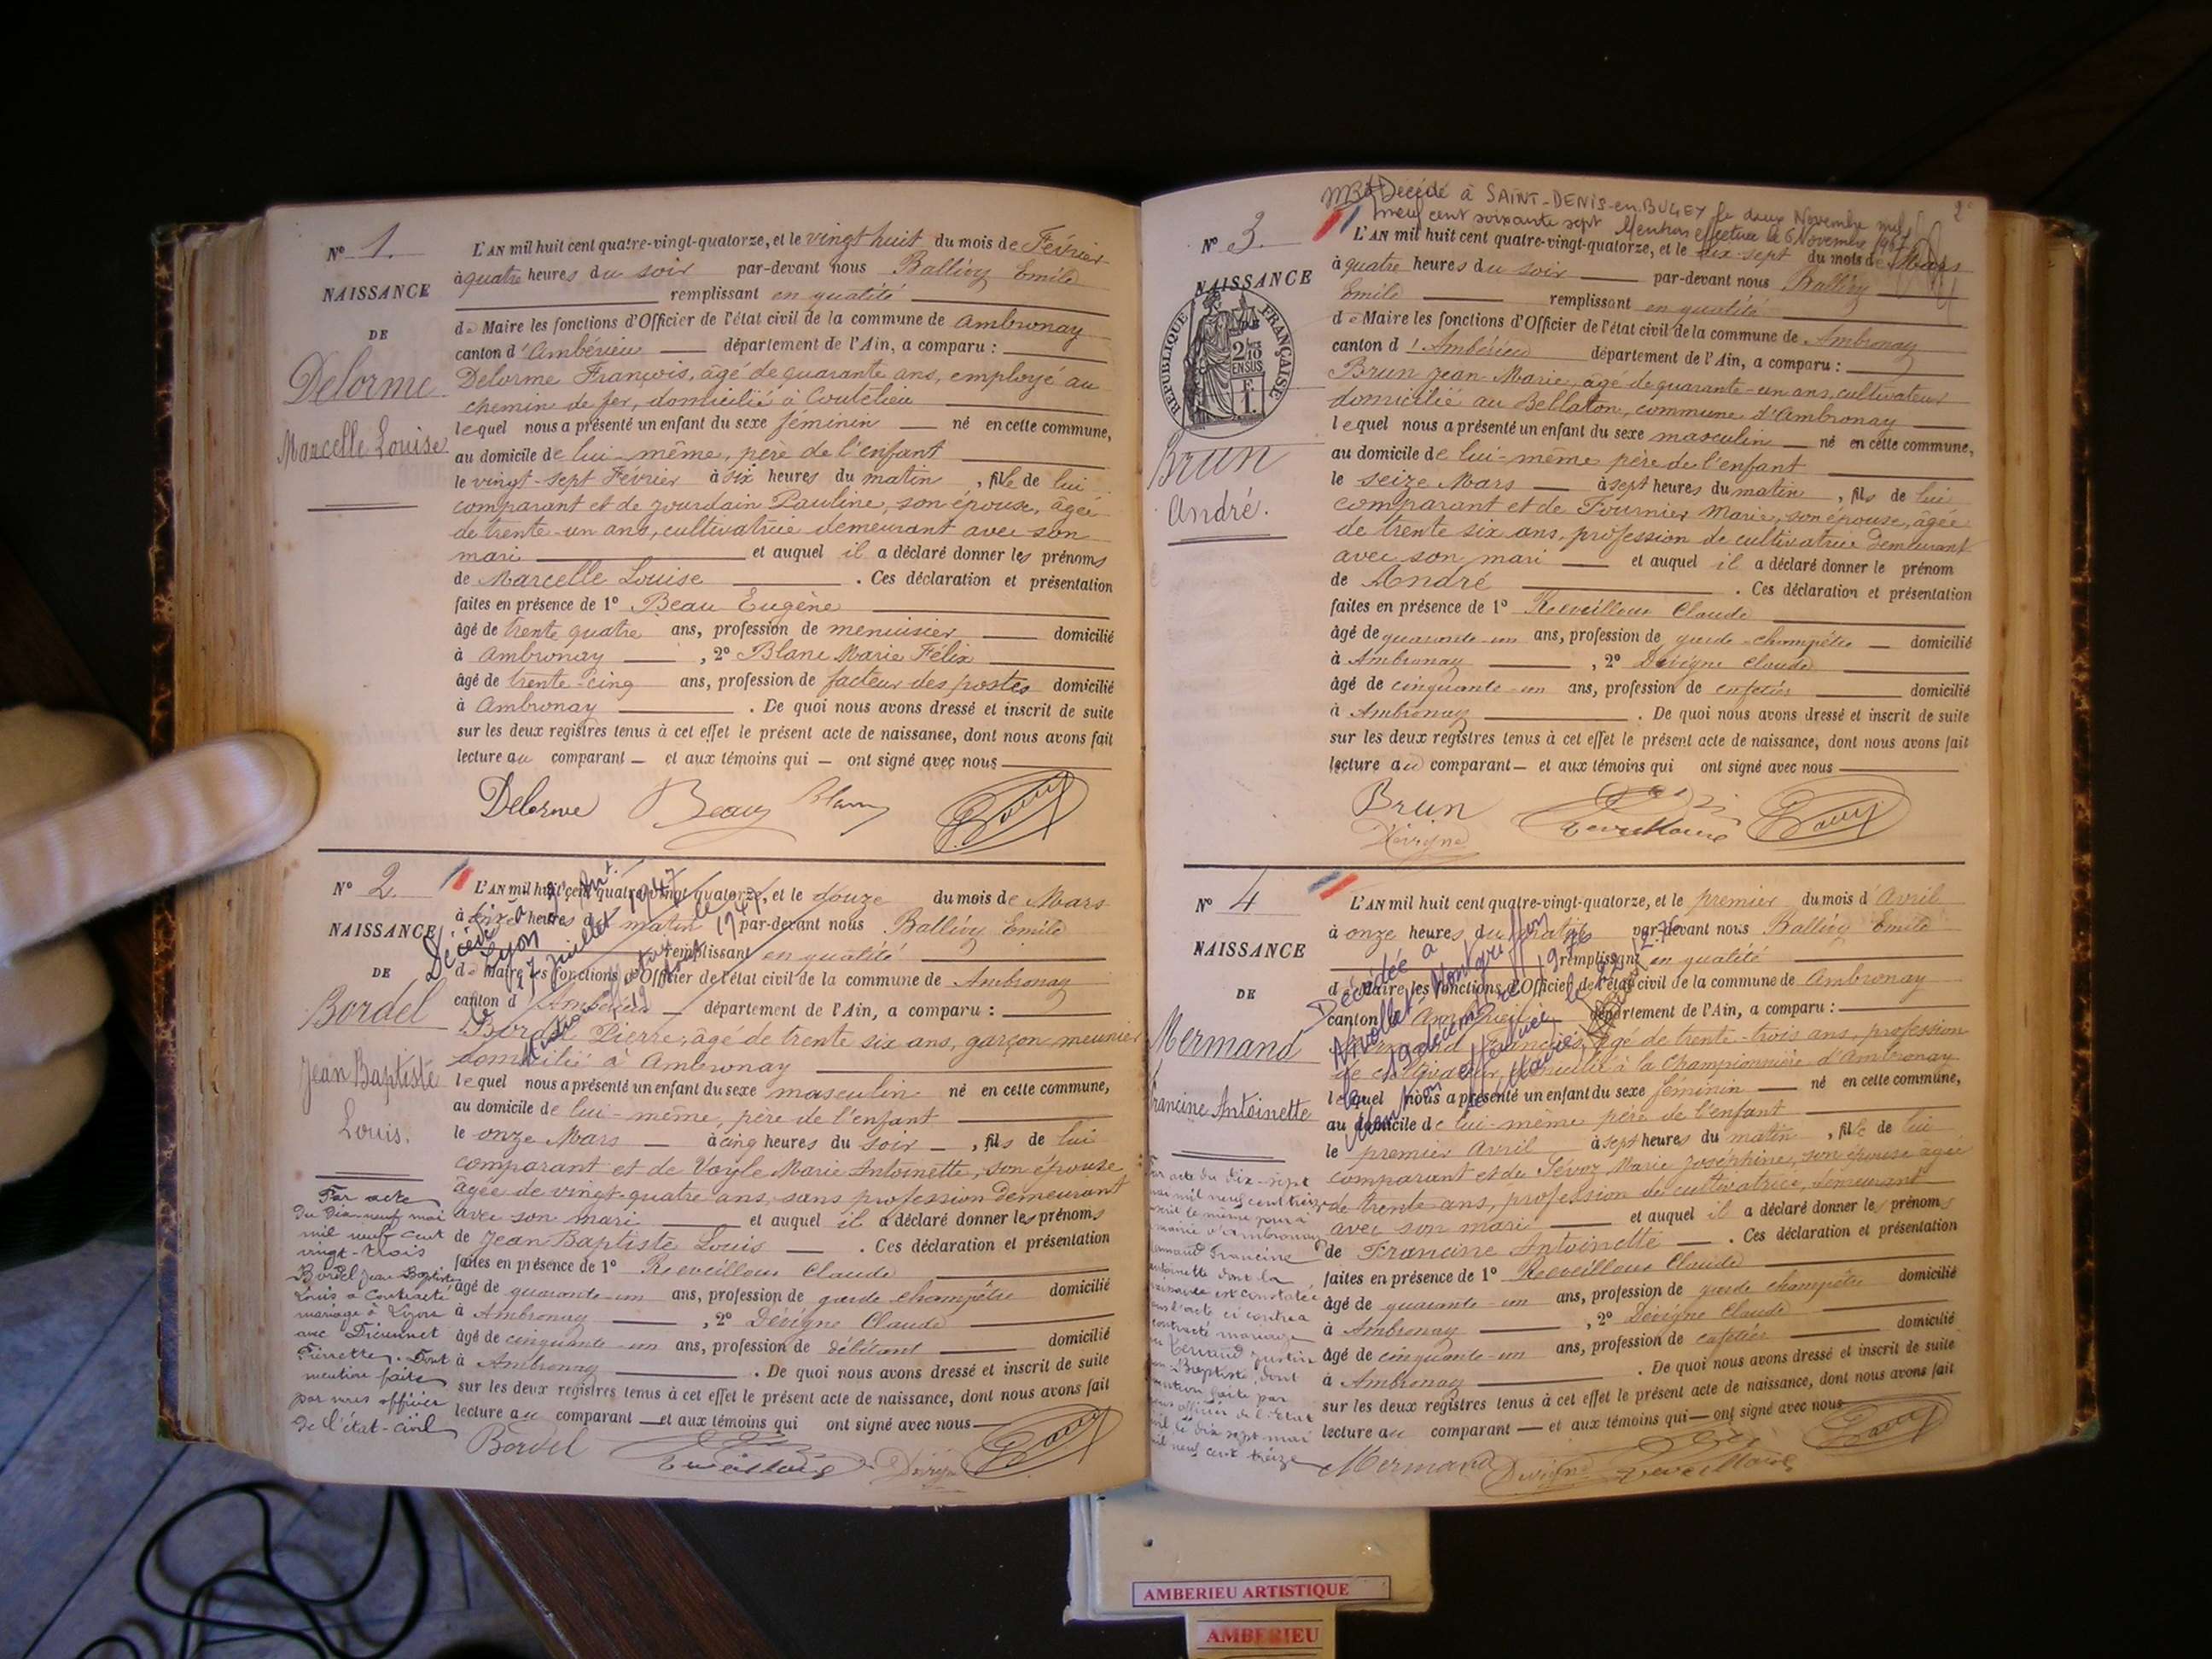 N° 1.
NAISSANCE
DE
Delorme
Marcelle Louise
L'AN mil huit cent quatre-vingt-quatorze, et le vingt huit du mois de Février
à quatre heures du soir par-devant nous Ballivy Emile
remplissant en qualité
de Maire les fonctions d'Officier de l'état civil de la commune de Ambronay
canton d'Ambérieu département de l'Ain, a comparu :
Delorme François, âgé de quarante ans, employé au
chemin de fer, domicilié à Coutelieu
lequel nous a présenté un enfant du sexe féminin né en cette commune,
au domicile de lui-même, père de l'enfant
le vingt-sept Février à six heures du matin, fille de lui
comparant et de Jourdain Pauline, son épouse, âgée
de trente-un ans, cultivatrice demeurant avec son
mari et auquel il a déclaré donner les prénoms
de Marcelle Louise . Ces déclaration et présentation
faites en présence de 1° Beau Eugène
âgé de trente quatre ans, profession de menuisier domicilié
à Ambronay , 2° Blanc Marie Félix
âgé de trente-cinq ans, profession de facteur des postes domicilié
à Ambronay . De quoi nous avons dressé et inscrit de suite
sur les deux registres tenus à cet effet le présent acte de naissance, dont nous avons fait
lecture au comparant — et aux témoins qui — ont signé avec nous
Delorme Beau Blanc
N° 2.
NAISSANCE
DE
Bordel
Jean Baptiste
Louis.
L'AN mil huit cent quatre-vingt-quatorze, et le douze du mois de Mars
à heures du matin par-devant nous Ballivy Emile
remplissant en qualité
de Maire les fonctions d'Officier de l'état civil de la commune de Ambronay
canton d'Ambérieu département de l'Ain, a comparu :
Bordel Pierre, âgé de trente six ans, garçon meunier
domicilié à Ambronay
lequel nous a présenté un enfant du sexe masculin né en cette commune,
au domicile de lui-même, père de l'enfant
le onze Mars à cinq heures du soir , fils de lui
comparant et de Voyle Marie Antoinette, son épouse,
âgée de vingt-quatre ans, sans profession demeurant
avec son mari et auquel il a déclaré donner les prénoms
de Jean Baptiste Louis . Ces déclaration et présentation
faites en présence de 1° Reveilloux Claude
âgé de quarante-un ans, profession de garde champêtre domicilié
à Ambronay , 2° Dévigne Claude
âgé de cinquante-un ans, profession de débitant domicilié
à Ambronay . De quoi nous avons dressé et inscrit de suite
sur les deux registres tenus à cet effet le présent acte de naissance, dont nous avons fait
lecture au comparant — et aux témoins qui ont signé avec nous
Bordel
Décédé à
Lyon
le 7 Juillet 1947
Par acte
du dix-neuf mai
mil neuf cent
vingt-trois
Bordel Jean Baptiste
Louis a contracté
mariage à Lyon
avec
Pierrette. Dont
mention faite
par nous officier
de l'état-civil
2
Décédé à SAINT-DENIS-en-BUGEY le deux Novembre mil
neuf cent soixante sept Mention effectuée le 6 Novembre 1967
N° 3.
NAISSANCE
RÉPUBLIQUE FRANÇAISE
2/10
EN SUS
Brun
André.
L'AN mil huit cent quatre-vingt-quatorze, et le dix-sept du mois de Mars
à quatre heures du soir par-devant nous Ballivy
Emile remplissant en qualité
de Maire les fonctions d'Officier de l'état civil de la commune de Ambronay
canton d'Ambérieu département de l'Ain, a comparu :
Brun Jean-Marie, âgé de quarante-un ans, cultivateur
domicilié au Bellaton, commune d'Ambronay
lequel nous a présenté un enfant du sexe masculin né en cette commune,
au domicile de lui-même père de l'enfant
le seize Mars à sept heures du matin , fils de lui
comparant et de Fournier Marie, son épouse, âgée
de trente six ans, profession de cultivatrice demeurant
avec son mari et auquel il a déclaré donner le prénom
de André . Ces déclaration et présentation
faites en présence de 1° Reveilloux Claude
âgé de quarante-un ans, profession de garde-champêtre domicilié
à Ambronay , 2° Dévigne Claude
âgé de cinquante-un ans, profession de cafetier domicilié
à Ambronay . De quoi nous avons dressé et inscrit de suite
sur les deux registres tenus à cet effet le présent acte de naissance, dont nous avons fait
lecture au comparant — et aux témoins qui ont signé avec nous
Brun
Dévigne
N° 4
NAISSANCE
DE
Mermand
Francine Antoinette
L'AN mil huit cent quatre-vingt-quatorze, et le premier du mois d'Avril
à onze heures du matin par-devant nous Ballivy Emile
remplissant en qualité
de Maire les fonctions d'Officier de l'état civil de la commune de Ambronay
canton d'Ambérieu département de l'Ain, a comparu :
Mermand François, âgé de trente-trois ans, profession
de cultivateur, domicilié à la Championnière d'Ambronay
lequel nous a présenté un enfant du sexe féminin né en cette commune,
au domicile de lui-même père de l'enfant
le premier Avril à sept heures du matin , fille de lui
comparant et de Marie Joséphine, son épouse âgée
de trente ans, profession de cultivatrice, demeurant
avec son mari et auquel il a déclaré donner les prénoms
de Francine Antoinette . Ces déclaration et présentation
faites en présence de 1° Reveilloux Claude
âgé de quarante-un ans, profession de garde champêtre domicilié
à Ambronay , 2° Dévigne Claude
âgé de cinquante-un ans, profession de cafetier domicilié
à Ambronay . De quoi nous avons dressé et inscrit de suite
sur les deux registres tenus à cet effet le présent acte de naissance, dont nous avons fait
lecture au comparant — et aux témoins qui — ont signé avec nous
Mermand Dévigne
Décédée à
Arvollet-Montgriffon
le 19 décembre 1975
Mention effectuée
acte du dix-sept
mai mil neuf cent treize
d'Ambronay
Mermand Francine
Antoinette dont la
naissance est constatée
dans l'acte ci-contre a
contracté mariage
Justin
Baptiste, dont
mention faite par
nous officier de l'état
civil le dix sept mai
mil neuf cent treize
AMBERIEU ARTISTIQUE
AMBERIEU